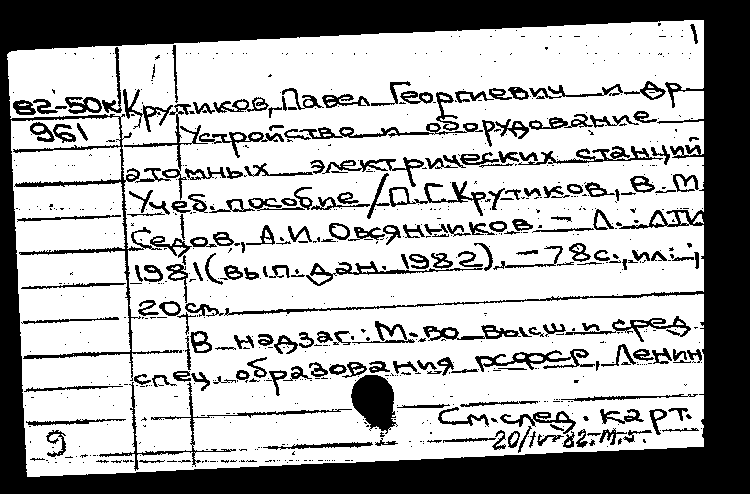 1
82-50к Крутиков, Павел Георгиевич и др
961 Устройство и оборудование
атомных электрических станций
Учеб. пособие / П.Г. Крутиков, В. М.
Седов, А.И. Овсянников. – Л.: ЛТИ
1981 (вып. дан. 1982). – 78 с., ил.;
20 см.
В надзаг.: М-во высш. и сред.
спец. образования РСФСР, Ленин
См. след. карт.
9 20/IV-82.